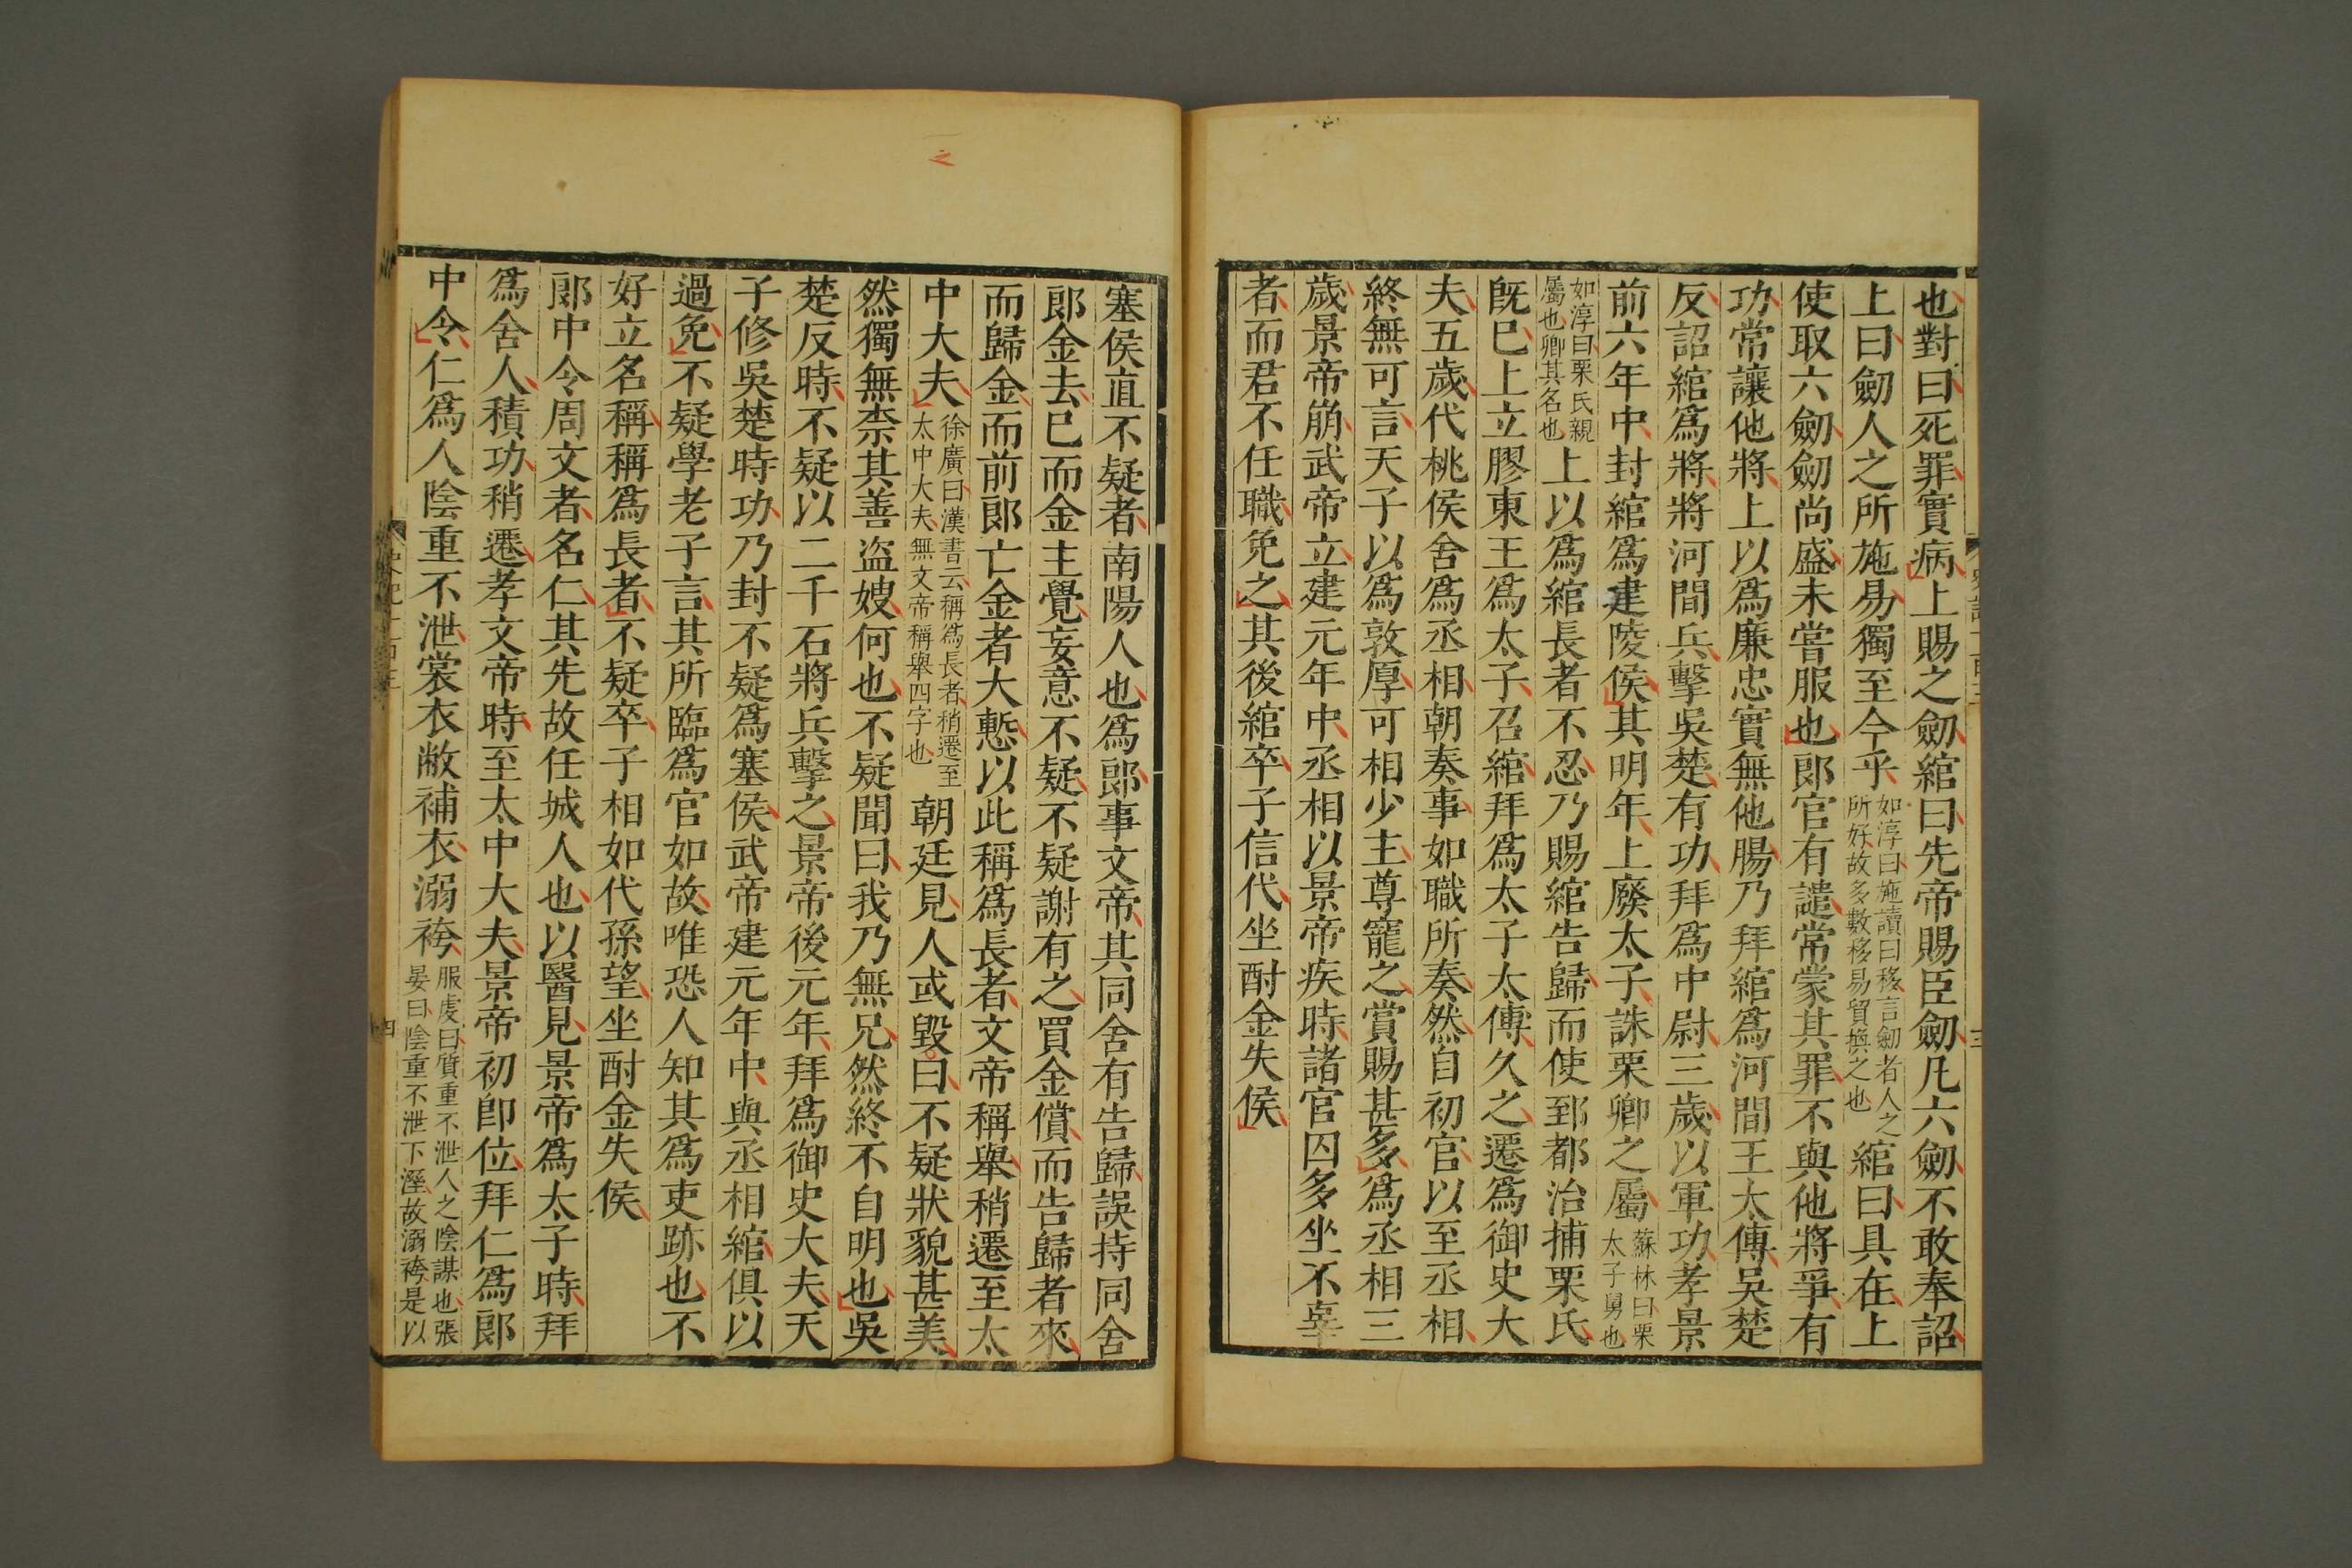 也對曰死罪實病上賜之劒綰曰先帝賜臣劒凡六劒不敢奉詔
上曰劒人之所施易獨至今乎如淳曰施讀曰移言劒者人之所好故多數移易貿換之也綰曰具在上
使取六劒劒尚盛未嘗服也郎官有譴常蒙其罪不與他將爭有
功常讓他將上以爲廉忠實無他腸乃拜綰爲河間王太傅吳楚
反詔綰爲將將河間兵擊吳楚有功拜爲中尉三歲以軍功孝景
前六年中封綰爲建陵侯其明年上廢太子誅栗卿之屬蘇林曰栗太子舅也
如淳曰栗氏親屬也卿其名也上以爲綰長者不忍乃賜綰告歸而使郅都治捕栗氏
旣巳上立膠東王爲太子召綰拜爲太子太傅久之遷爲御史大
夫五歲代桃侯舍爲丞相朝奏事如職所奏然自初官以至丞相
終無可言天子以爲敦厚可相少主尊寵之賞賜甚多爲丞相三
歲景帝崩武帝立建元年中丞相以景帝疾時諸官囚多坐不辜
者而君不任職免之其後綰卒子信代坐酎金失侯
塞侯直不疑者南陽人也爲郎事文帝其同舍有告歸誤持同舍
郎金去巳而金主覺妄意不疑不疑謝有之買金償而告歸者來
而歸金而前郎亡金者大慙以此稱爲長者文帝稱舉稍遷至太
中大夫徐廣曰漢書云稱爲長者稍遷至太中大夫無文帝稱舉四字也朝廷見人或毀曰不疑狀貌甚美
然獨無柰其善盜嫂何也不疑聞曰我乃無兄然終不自明也吳
楚反時不疑以二千石將兵擊之景帝後元年拜爲御史大夫天
子修吳楚時功乃封不疑爲塞侯武帝建元年中與丞相綰俱以
過免不疑學老子言其所臨爲官如故唯恐人知其爲吏跡也不
好立名稱稱爲長者不疑卒子相如代孫望坐酎金失侯
郎中令周文者名仁其先故任城人也以醫見景帝爲太子時拜
爲舍人積功稍遷孝文帝時至太中大夫景帝初卽位拜仁爲郎
中令仁爲人陰重不泄裳衣敝補衣溺袴服虔曰質重不泄人之陰謀也張晏曰陰重不泄下溼故溺袴是以
四